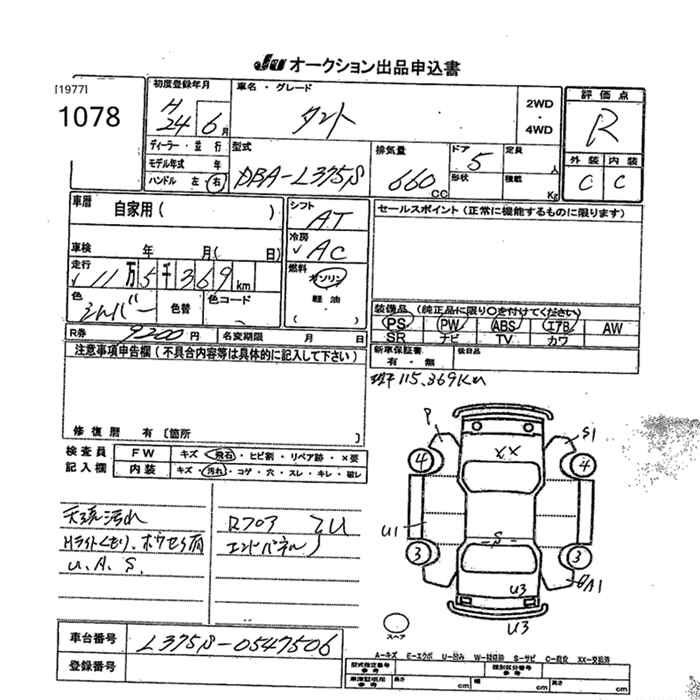 JU オークション出品申込書
[1977]
1078
初度登録年月
H
24 6月
車名・グレード
タント
2WD
・
4WD
評価点
R
外装 内装
C C
ディーラー・並行
モデル年式 年
ハンドル 左 右
型式
DBA-L375S
排気量
660 CC
ドア 5
形状
定員 人
積載 Kg
車歴
自家用( )
車検 年 月( 日)
シフト
AT
冷房
AC
燃料
ガソリン
軽油
( )
セールスポイント(正常に機能するものに限ります)
走行
11万5千369km
色
シルバー
色替
色コード
装備品(純正品に限り○を付けてください)
PS PW ABS エアB AW
SR ナビ TV カワ
R券 9200円 名変期限 月 日
新車保証書
有・無
後日品
注意事項申告欄(不具合内容等は具体的に記入して下さい)
115,369Km
修復歴 有〔箇所 〕
検査員
記入欄
FW キズ・飛石・ヒビ割・リペア跡・×要
内装 キズ・汚れ・コゲ・穴・スレ・キレ・破レ
天張汚れ
Hライトくもり、ボウセラ有
U、A、S、
Rフロア
エンドパネル
ZU
P
S1
4
4
XX
U1
S
3
3
A1
U3
U3
スペア
車台番号 L375S-0547506
登録番号
A-キズ E-エクボ U-凹み W-補修跡 S-サビ C-腐食 XX-交換済
型式指定番号
参考
類別区分番号
参考
車庫証明用
参考
長さ cm 幅 cm 高さ cm